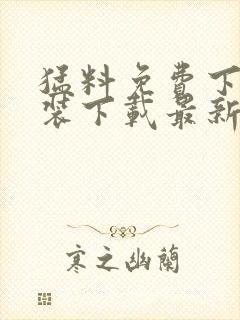 猛料免费下
装下载最新
寒之幽蘭